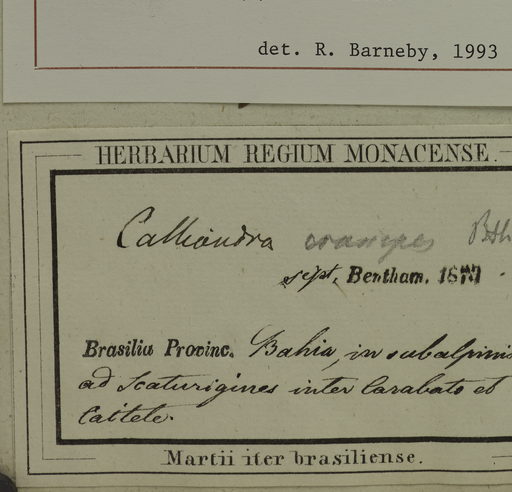 det. R. Barneby, 1993
HERBARIUM REGIUM MONACENSE.
Calliandra crassipes Bth
sept. Bentham. 1870
Brasilia Provinc. Bahia, in subalpinis
ad scaturigines inter Carabato et
Caitete.
Martii iter brasiliense.